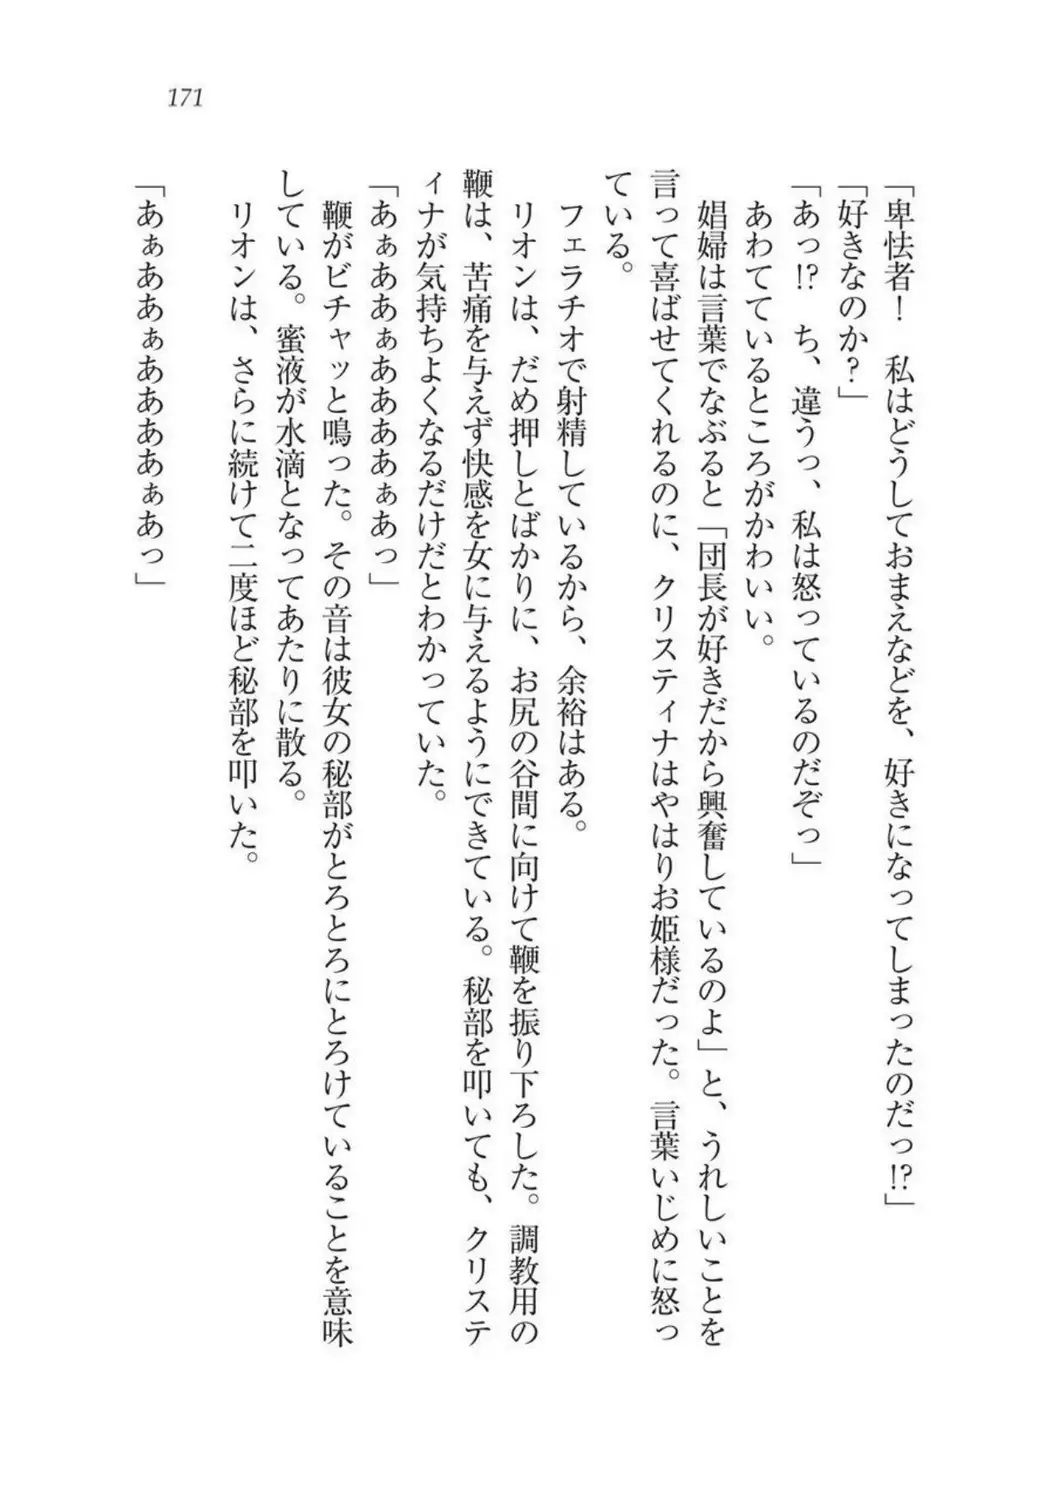 171
「卑怯者！　私はどうしておまえなどを、好きになってしまったのだっ!?」
「好きなのか？」
「あっ!?　ち、違うっ、私は怒っているのだぞっ」
　あわてているところがかわいい。
　娼婦は言葉でなぶると「団長が好きだから興奮しているのよ」と、うれしいことを
言って喜ばせてくれるのに、クリスティナはやはりお姫様だった。言葉いじめに怒っ
ている。
　フェラチオで射精しているから、余裕はある。
　リオンは、だめ押しとばかりに、お尻の谷間に向けて鞭を振り下ろした。調教用の
鞭は、苦痛を与えず快感を女に与えるようにできている。秘部を叩いても、クリステ
ィナが気持ちよくなるだけだとわかっていた。
「あぁああぁああああぁあっ」
　鞭がビチャッと鳴った。その音は彼女の秘部がとろとろにとろけていることを意味
している。蜜液が水滴となってあたりに散る。
　リオンは、さらに続けて二度ほど秘部を叩いた。
「あぁああぁああああぁあっ」